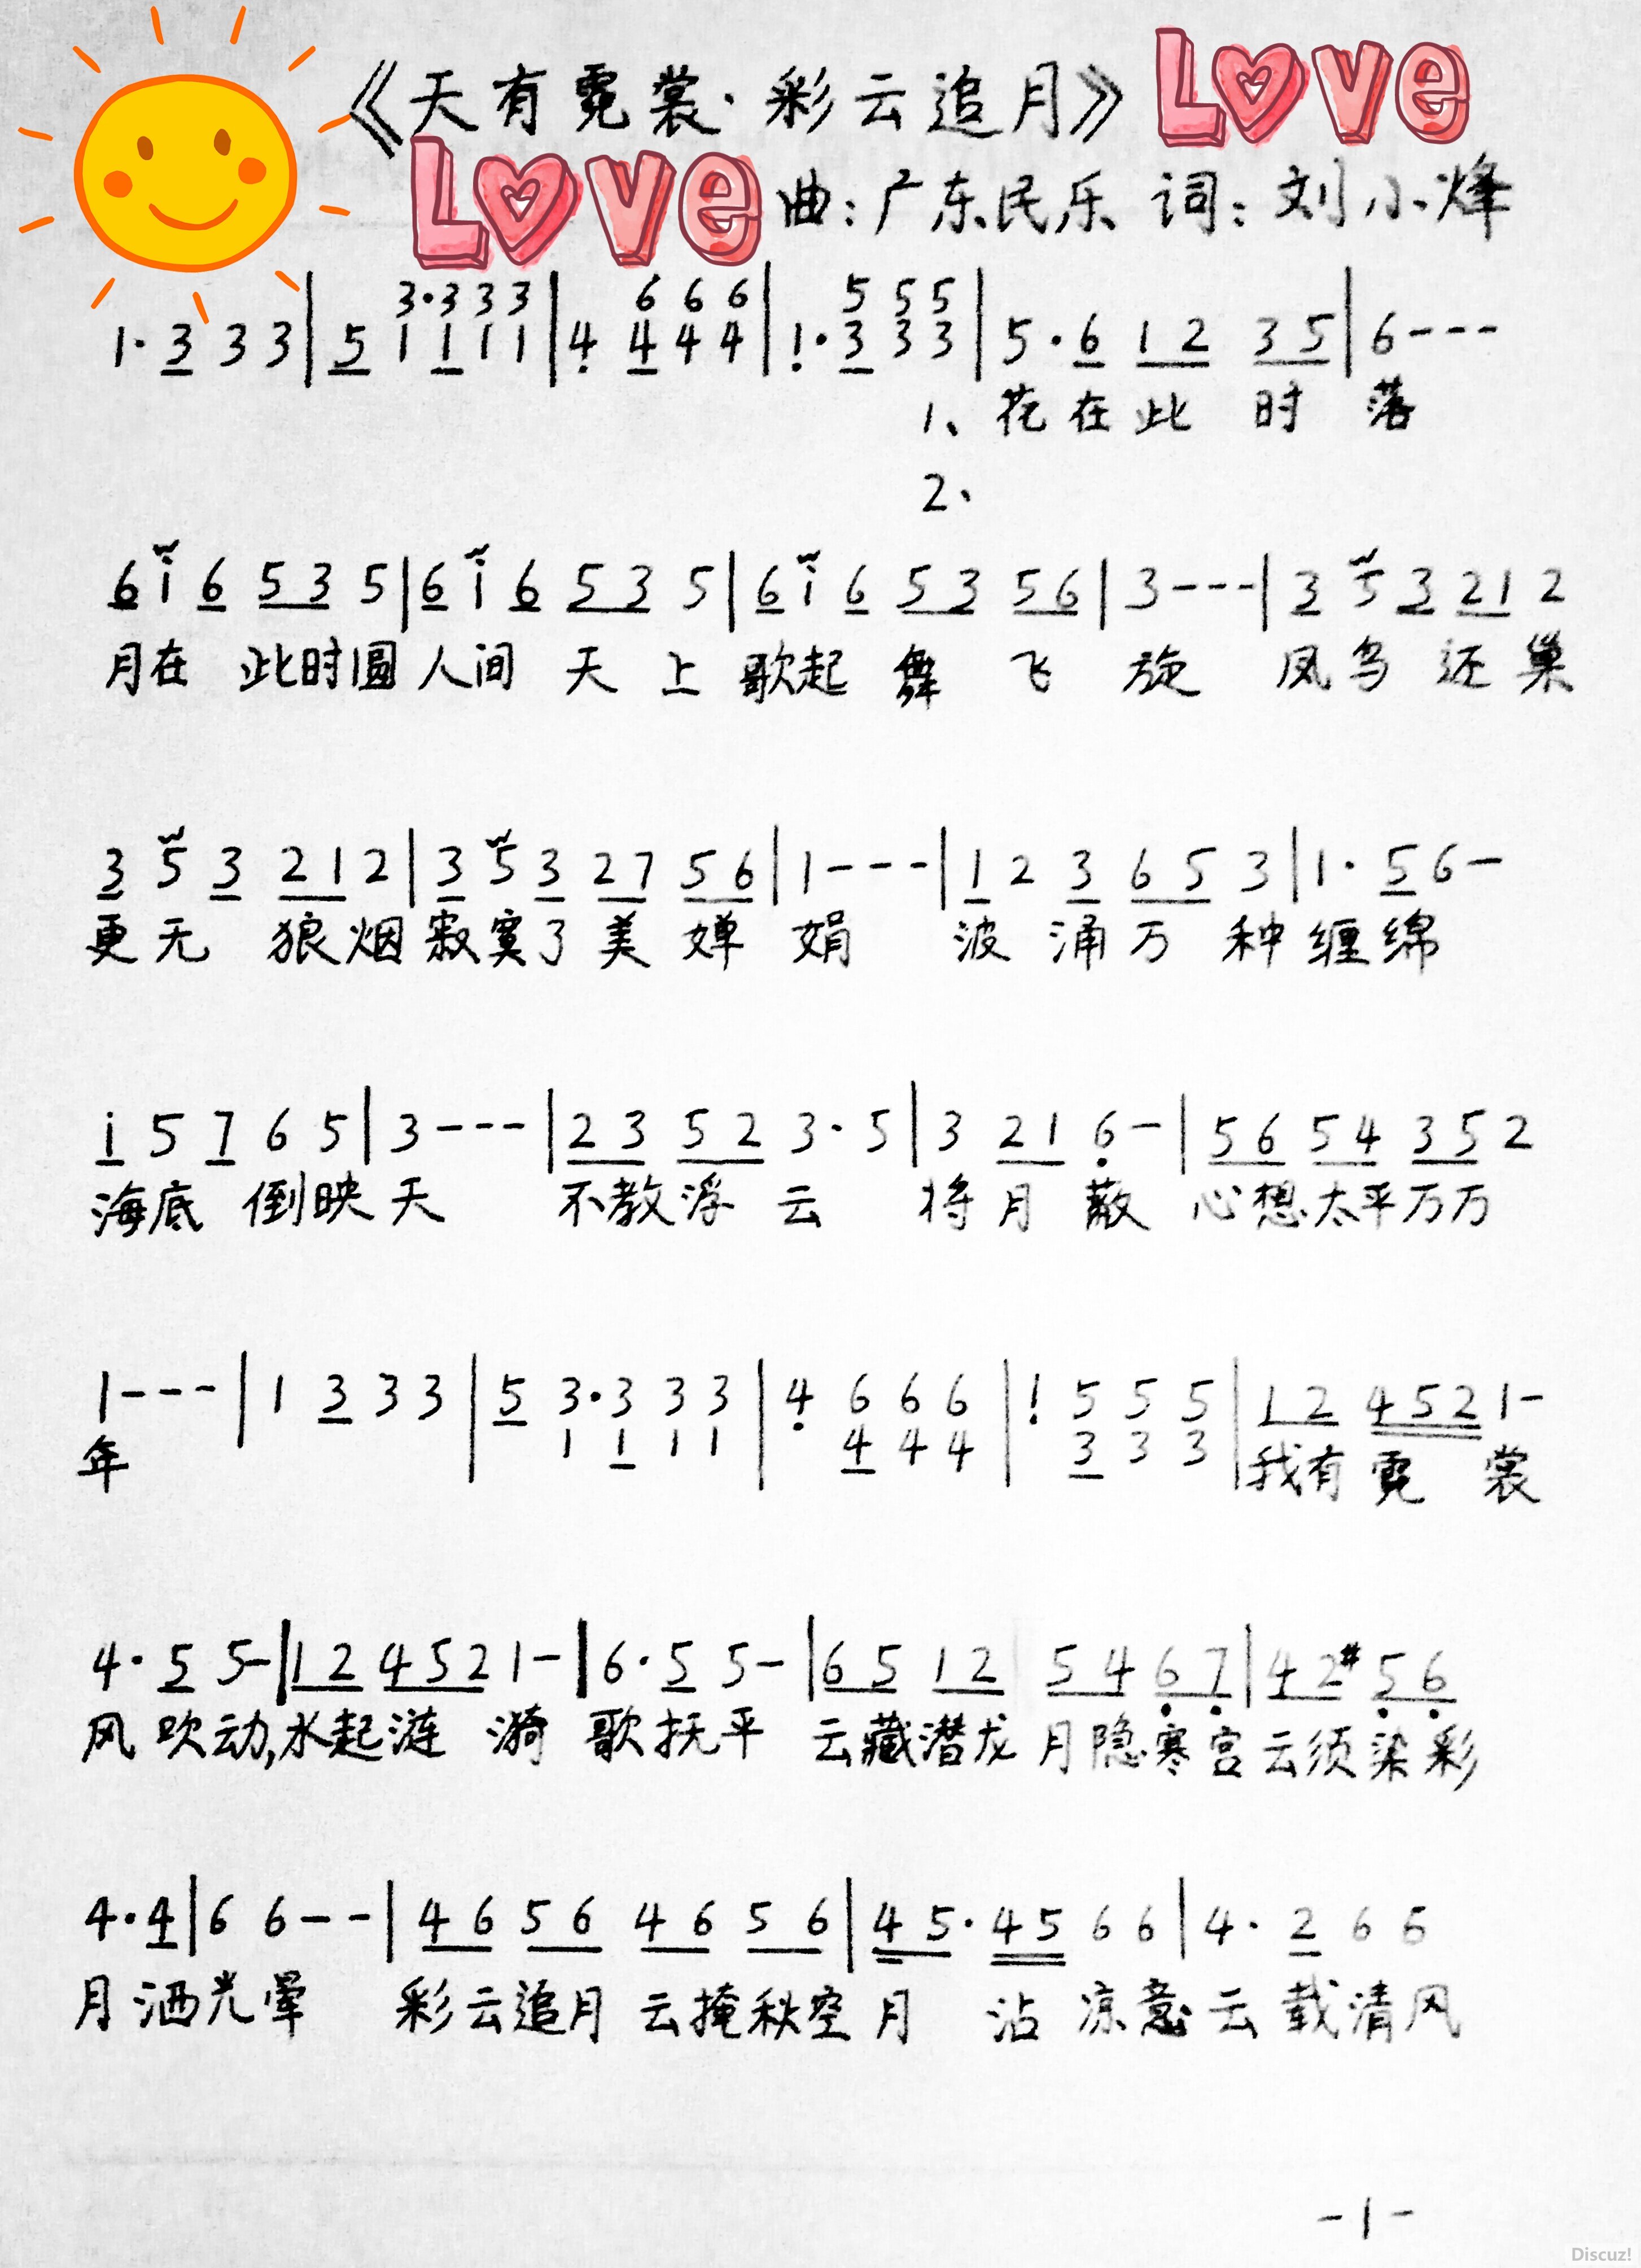 《天有霓裳·彩云追月》 Love
Love 曲:广东民乐 词:刘小烽
3·3 3 3 6 6 6 5 5 5
1·3 3 3|5 1 1 1 1|4 4 4 4|1·3 3 3|5·6 1 2 3 5|6---
1、花在此 时 落
2、
6 i 6 5 3 5|6 i 6 5 3 5|6 i 6 5 3 5 6|3---|3 5 3 2 1 2
月在 此时圆 人间 天 上 歌起 舞 飞 旋 凤鸟 还 巢
3 5 3 2 1 2|3 5 3 2 7 5 6|1---|1 2 3 6 5 3|1· 5 6-
更无 狼烟 寂寞了 美 婵 娟 波 涌万 种 缠绵
i 5 7 6 5|3---|2 3 5 2 3·5|3 2 1 6-|5 6 5 4 3 5 2
海底 倒映天 不教浮 云 将 月 散 心想太平万万
1---|1 3 3 3|5 3·3 3 3|4 6 6 6|1 5 5 5|1 2 4 5 2 1-
1 1 1 1 4 4 4 3 3 3
年 我有 霓 裳
4·5 5-|1 2 4 5 2 1-|6·5 5-|6 5 1 2 5 4 6 7|4 2# 5 6
风 吹动,水起涟 漪 歌抚平 云藏潜龙 月隐寒宫 云须染彩
4·4|6 6--|4 6 5 6 4 6 5 6|4 5·4 5 6 6|4· 2 6 6
月洒光晕 彩云追月 云掩秋空 月 沾 凉意 云 载清风
-1-
Discuz!